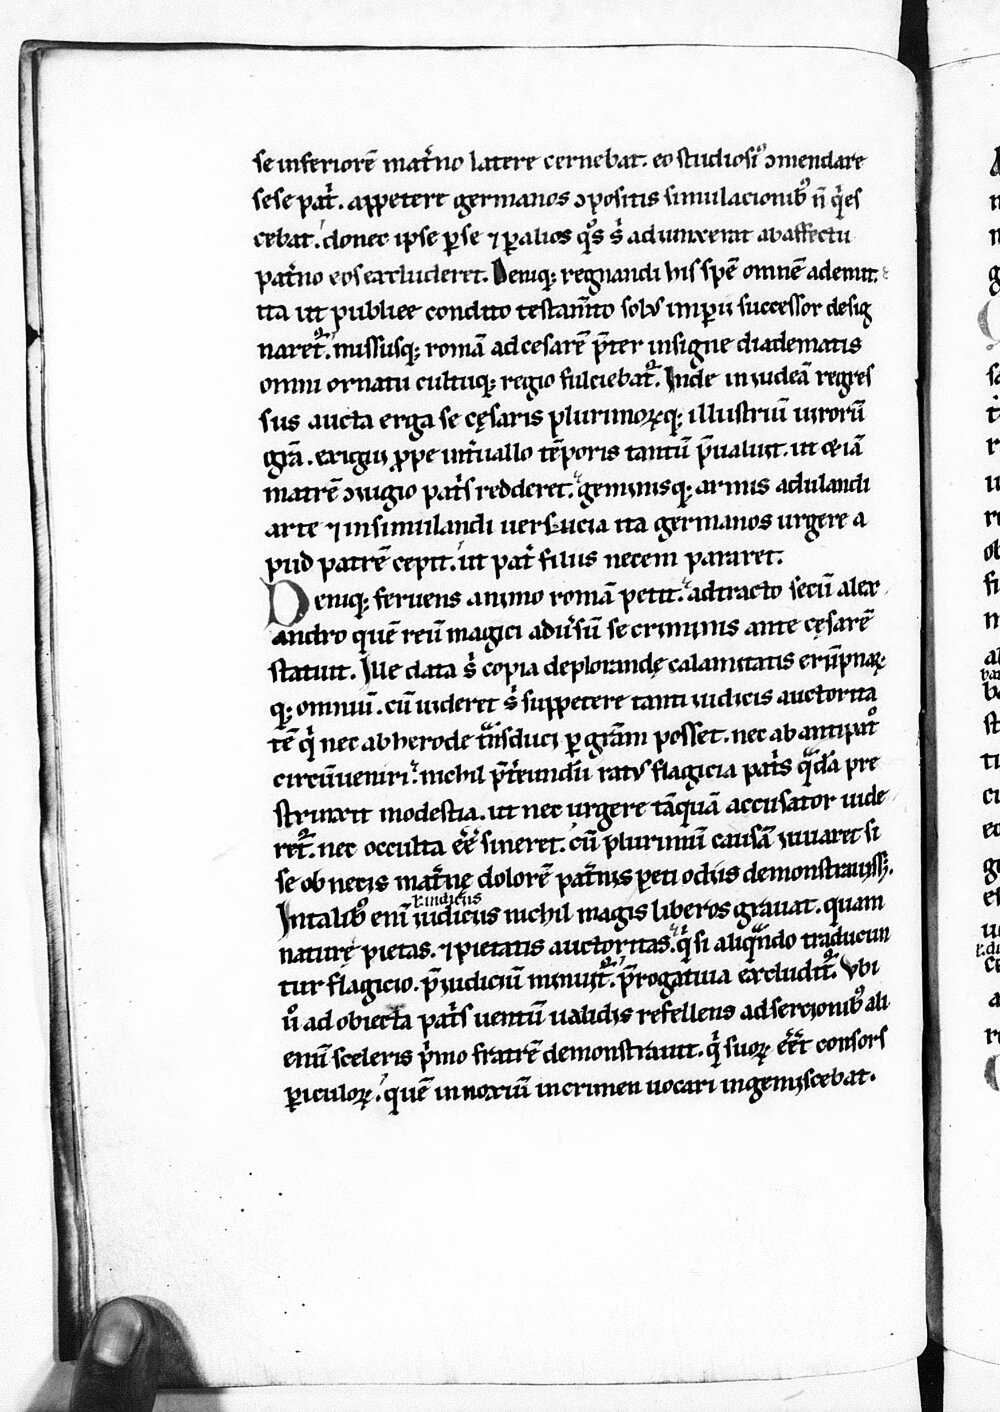 se inferiorē mat̄no latere cernebat. eo studiosi᷒ ꝯmendare
sese pat̄. appetere germanos ꝯpositis simulacionib᷒ ñ q̇es
cebat. donec ipse ꝑ se ⁊ ꝑ alios qͦs s̄ adiunxerat ab affectu
pat̄no eos excluderet. Deniq; regnandi his spē omnē ademit.
ita ut publice condito testam̄to solꝰ imꝑii successor desig
naret᷑. missusq; romā ad cesarē p̄ter insigne diadematis
omni ornatu cultuq; regio fulciebat᷑. Inde in iudeā regres
sus aucta erga se cęsaris plurimoꝝq; illustriū uirorū
gr̄a. exiguo ꝓpe int̄uallo tēporis tantū p̄ualuit. ut etiā
matrē ꝯiugio pat̄s redderet. geminisq; armis adulandi
arte ⁊ insimulandi uersucia ita germanos urgere a
pud patrē cepit. ut pat̄ filiis necem pararet.
Deniq; feruens animo romā petit. adtracto secū alex
andro quē reū magici adūsū se criminis ante cęsarē
statuit. Ille data s̄ copia deplorandę calamitatis erūpnaꝝ
q; omniū. cū uideret s̄ suppetere tanti iudicis auctorita
tē q̇ nec ab herode tᷓnsduci ꝑ gr̄am posset. nec ab antipat̄o
circūueniri. nichil p̄t̄eundū ratꝰ flagicia pat̄s qᷓdā pre
strinxit modestia. ut nec urgere tāquā accusator uide
ret᷑. nec occulta eē sineret. cū plurimū causā iuuaret si
se ob necis mat̄nę dolorē pat̄nis peti odiis demonstrauiss;.
ł indiciis
In talib᷒ enī iudiciis nichil magis liberos grauat. quam
naturę pietas. ⁊ pietatis auctoritas. q̇ si aliqᷓndo traducun
tur flagicio. p̄iudiciū minuit᷑. p̄rogatiua excludit᷑. Vbi
ū ad obiecta pat̄s uentū ualidis refellens adsercionib᷒ ali
enū sceleris ṗmo fratrē demonstrauit. q̇ suoꝝ eēt consors
ꝑiculoꝝ. quē innoxiū in crimen uocari ingemiscebat.